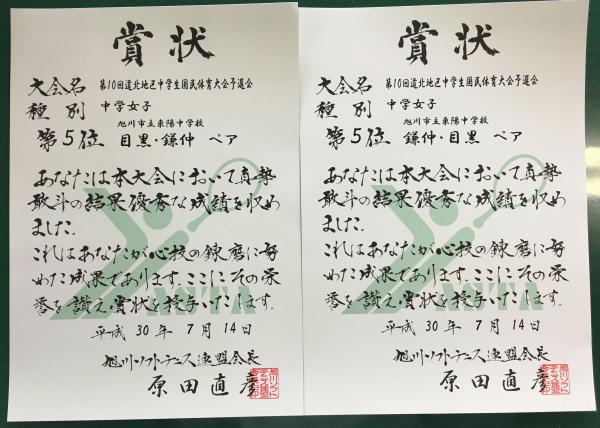 賞状
大会名 第10回道北地区中学生国民体育大会予選会
種別 中学女子
旭川市立東陽中学校
第5位 目黒・鎌仲 ペア
あなたは本大会において真摯
敢斗の結果優秀な成績を収め
ました.
これはあなたが心技の錬磨に努
めた成果であります.ここにその栄
誉を讃え賞状を授与いたします.
ASTA
平成 30年 7月 14日
旭川ソフトテニス連盟会長
原田直彦
賞状
大会名 第10回道北地区中学生国民体育大会予選会
種別 中学女子
旭川市立東陽中学校
第5位 鎌仲・目黒 ペア
あなたは本大会において真摯
敢斗の結果優秀な成績を収め
ました.
これはあなたが心技の錬磨に努
めた成果であります.ここにその栄
誉を讃え賞状を授与いたします.
ASTA
平成 30年 7月 14日
旭川ソフトテニス連盟会長
原田直彦